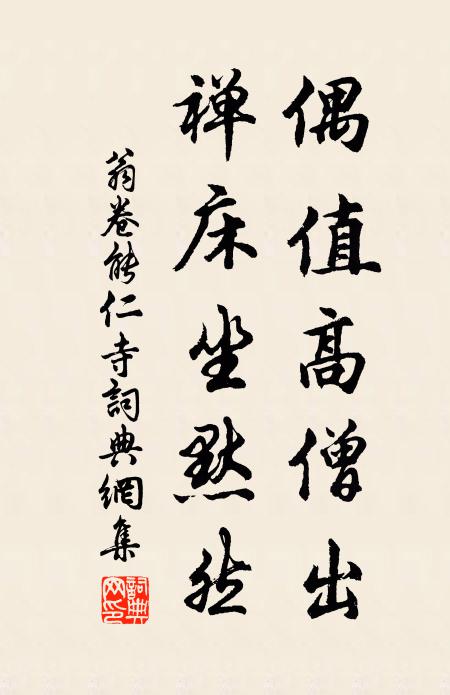 偶值高僧出
禅床坐默然
翁卷能仁寺詞典網集
詞典网印